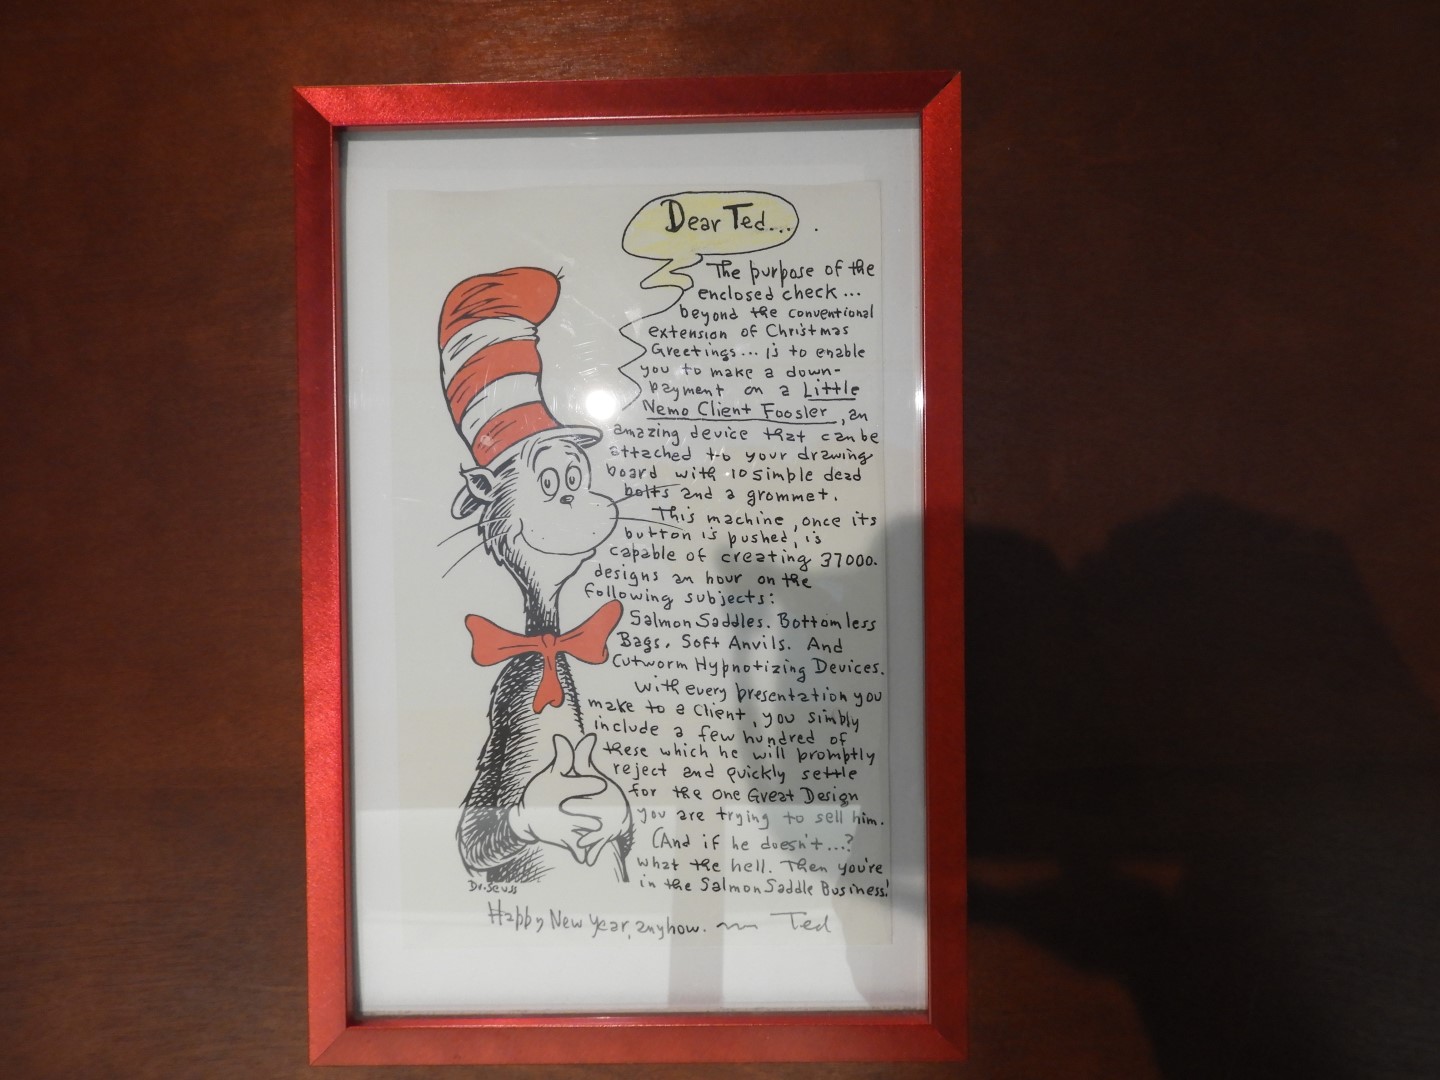 Dear Ted... .
The purpose of the
enclosed check...
beyond the conventional
extension of Christmas
Greetings... is to enable
you to make a down-
payment on a Little
Nemo Client Foosler, an
amazing device that can be
attached to your drawing
board with 10 simple dead
bolts and a grommet.
This machine, once its
button is pushed, is
capable of creating 37000.
designs an hour on the
following subjects:
Salmon Saddles. Bottomless
Bags. Soft Anvils. And
Cutworm Hypnotizing Devices.
With every presentation you
make to a client, you simply
include a few hundred of
these which he will promptly
reject and quickly settle
for the One Great Design
you are trying to sell him.
(And if he doesn't...?
What the hell. Then you're
in the Salmon Saddle Business!
Dr. Seuss
Happy New Year, anyhow. Ted